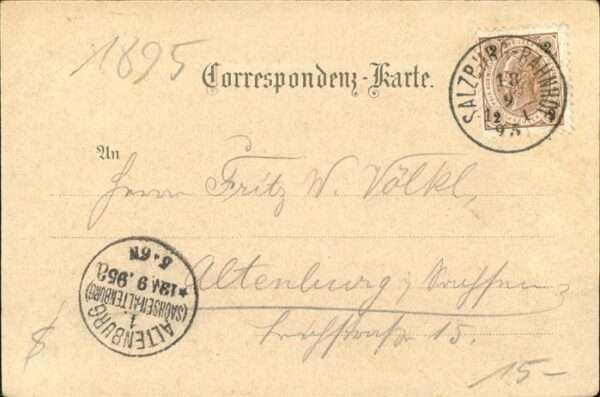 1895
Correspondenz-Karte.
SALZBURG-BAHNHOF
18
9
12 1
95
An
Herrn Fritz W. Völkl,
Altenburg, Sachsen,
15.
ALTENBURG
(SACHSEN-ALTENBURG)
1.
9.95
5-6N
15-